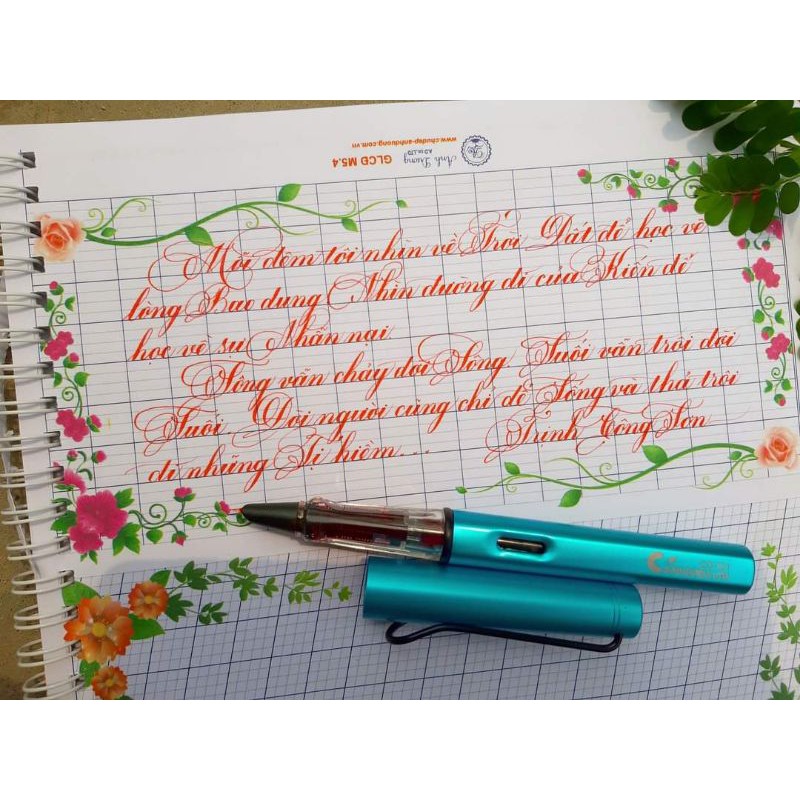 Anh Dương
GLCĐ M5.4
www.chudep-anhduong.com.vn
Mỗi đêm tôi nhìn về Trời Đất để học về
lòng Bao dung Nhìn đường đi của Kiến để
học về sự Nhẫn nại.
Sông vẫn chảy đời Sông, Suối vẫn trôi đời
Suối Đời người cũng chỉ để Sống và thả trôi
đi những Tị hiềm...
Trịnh Công Sơn